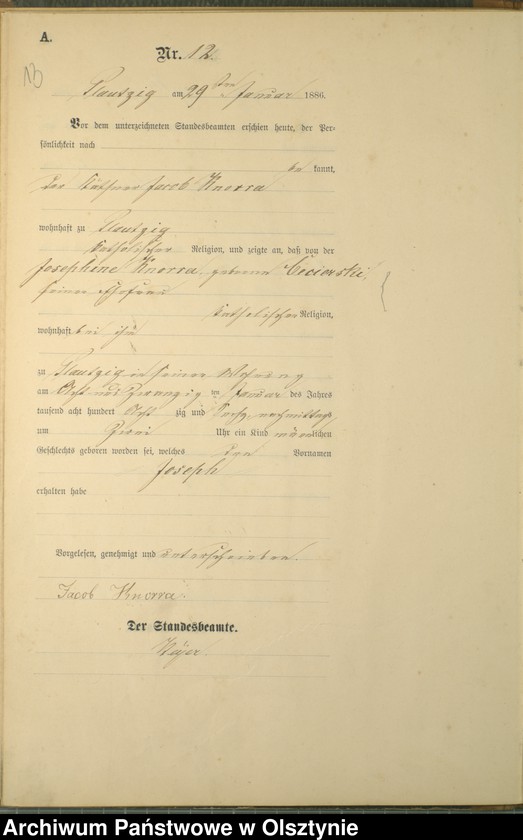 A.
Nr. 12.
13
Plautzig am 29ten Januar 1886.
Vor dem unterzeichneten Standesbeamten erschien heute, der Per-
sönlichkeit nach
be kannt,
der Käthner Jacob Knorra
wohnhaft zu Plautzig
katholischer Religion, und zeigte an, daß von der
Josephine Knorra geborene
seiner Ehefrau
katholischer Religion,
wohnhaft bei ihm
zu Plautzig in seiner Wohnung
am Acht und zwanzigten Januar des Jahres
tausend acht hundert Acht zig und Sechs, nachmittags
um Zwei Uhr ein Kind männlichen
Geschlechts geboren worden sei, welches den Vornamen
Joseph
erhalten habe
Vorgelesen, genehmigt und unterschrieben.
Jacob Knorra.
Der Standesbeamte.
Archiwum Państwowe w Olsztynie